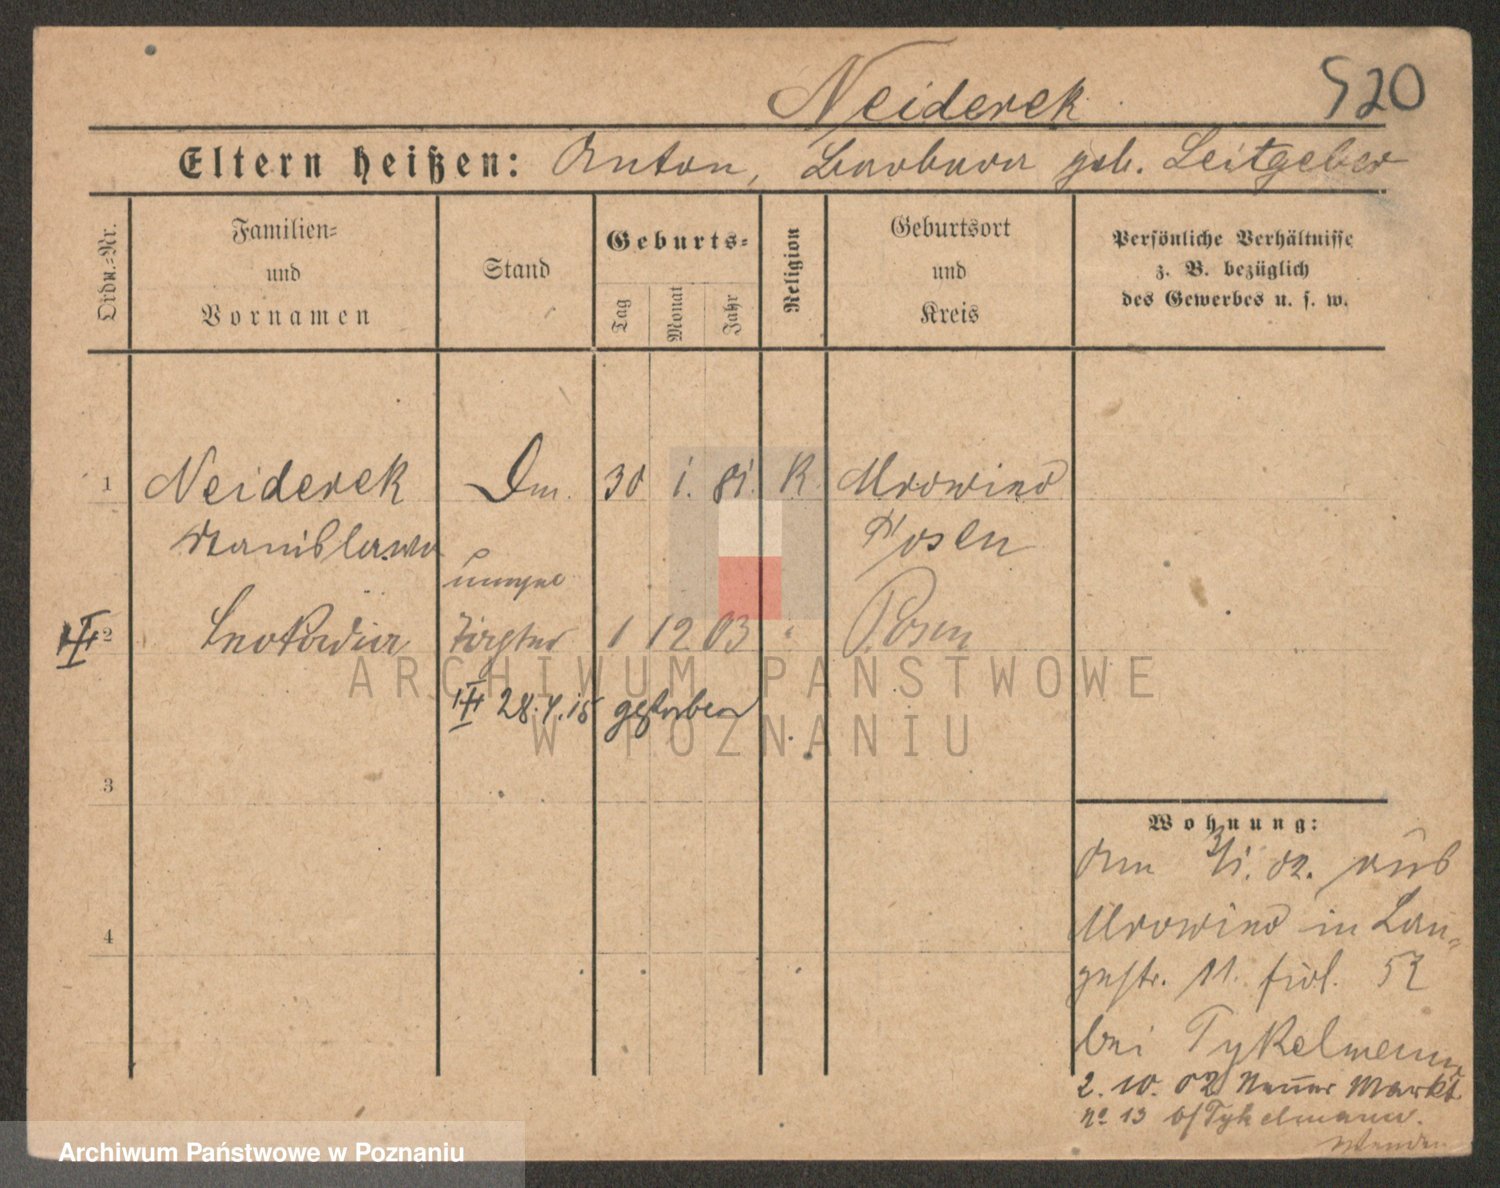 Neiderek 520
Eltern heißen: Anton, Barbara geb. Leitgeber
Ordn.-Nr.
Familien-
und
Vornamen
Stand
Geburts-
Tag
Monat
Jahr
Religion
Geburtsort
und
Kreis
Persönliche Verhältnisse
z. B. bezüglich
des Gewerbes u. s. w.
1 Neiderek Dm. 30 1. 81. K Mrowino
Stanislawa Posen
unehel
III 2 Leokadia Tochter 1 12 03 " Posen
III 28.4.15 gestorben
3
4
Wohnung:
Am 3/1. 02. aus
Mrowino in Lan-
gestr. 11. fidl.
bei Tykelmann
2. 10. 02 Neuer Markt
no 13 b/Tykelmann.
ARCHIWUM PAŃSTWOWE
W POZNANIU
Archiwum Państwowe w Poznaniu